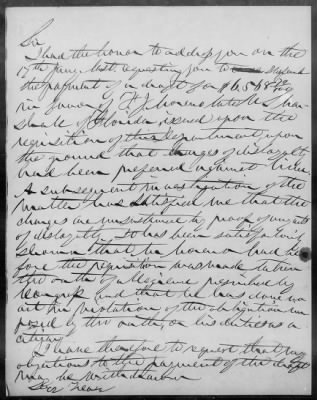 Sir
I had the honor to address you on the
17th Jany. last. requesting you to suspend
the payment of a draft for $6,568
in favor of F. J. late US Mar-
shal of Florida issued upon the
requisition of this Department upon
the ground that charges of disloyalty
had been preferred against him.
A subsequent investigation of the
matter has satisfied me that the
charges are unsustained by proof
of disloyalty. It has been satisfactorily
shown that he had be
fore the requisition was made taken
the oath of allegiance prescribed by
Congress and that he has done no
act in violation of the obligation im
posed by this oath, or his duties as a
citizen.
I have therefore to request that my
objections to the payment of the draft
may be withdrawn
Secy Treasy